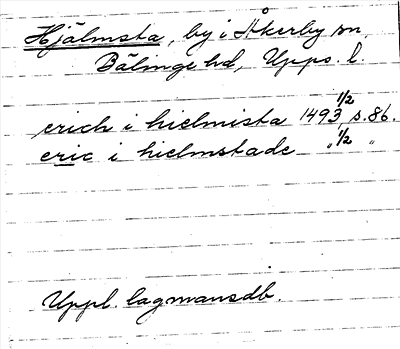 Hjälmsta, by i Åkerby sn,
Bälinge hd, Upps. l.
erich i hielmista 1493 1/2, s. 86.
eric i hielmstade " 1/2 "
Uppl. lagmansdb.